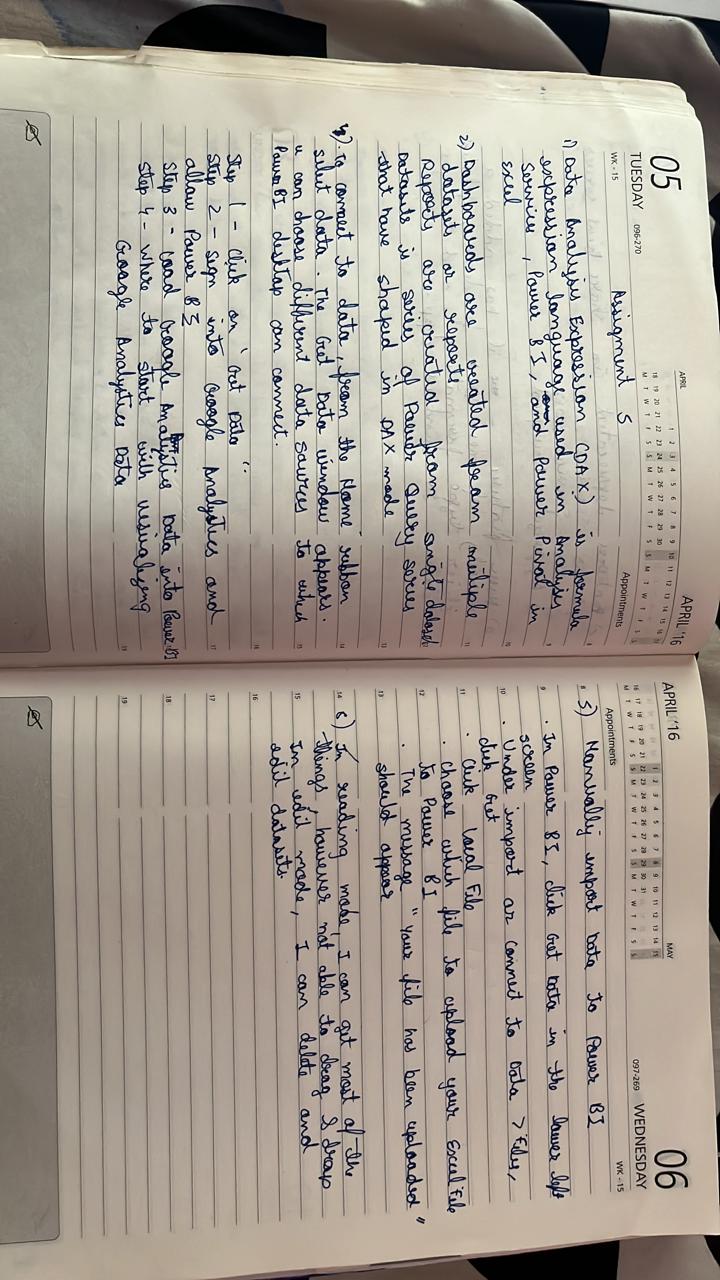 05
TUESDAY
096-270
WK - 15
APRIL
APRIL '16
Appointments
Assignment 5
1) Data Analysis Expression (DAX) is formula
expression language used in Analysis
Services, Power BI, and Power Pivot in
excel
2) Dashboards are created from multiple
datasets or reports
Reports are created from single dataset
Datasets is series of Power Query series
that have shaped in DAX mode
To connect to data, from the Home ribbon
select data. The Get Data window appears.
u can choose different data sources to which
Power BI desktop can connect.
Step 1 - Click on "Get Data".
Step 2 - Sign into Google Analytics and
allow Power BI
Step 3 - Load Google Analytics Data into Power BI
Step 4 - Where to start with visualizing
Google Analytics Data
APRIL '16
MAY
097-269
WEDNESDAY
06
WK - 15
Appointments
5) Mannually import Data to Power BI
. In Power BI, click Get Data in the lower left
screen
. Under import or Connect to Data > Files,
click Get
. Click Local File
. Choose which file to upload your Excel File
to Power BI
. The message "Your file has been uploaded"
should appear
6) In reading mode, I can get most of the
things, however not able to drag & drop
In edit mode, I can delete and
edit datasets.